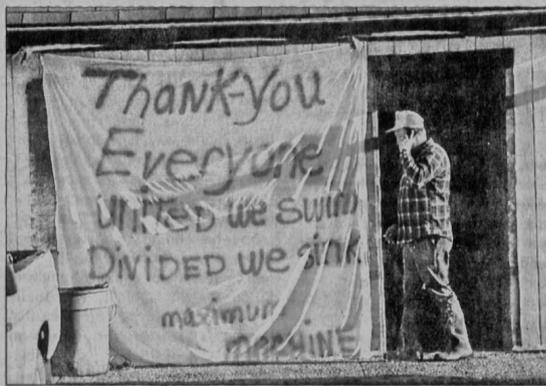 THANK-YOU
Everyone
UNITED we swim
DIVIDED we sink
maximum
MACHINE